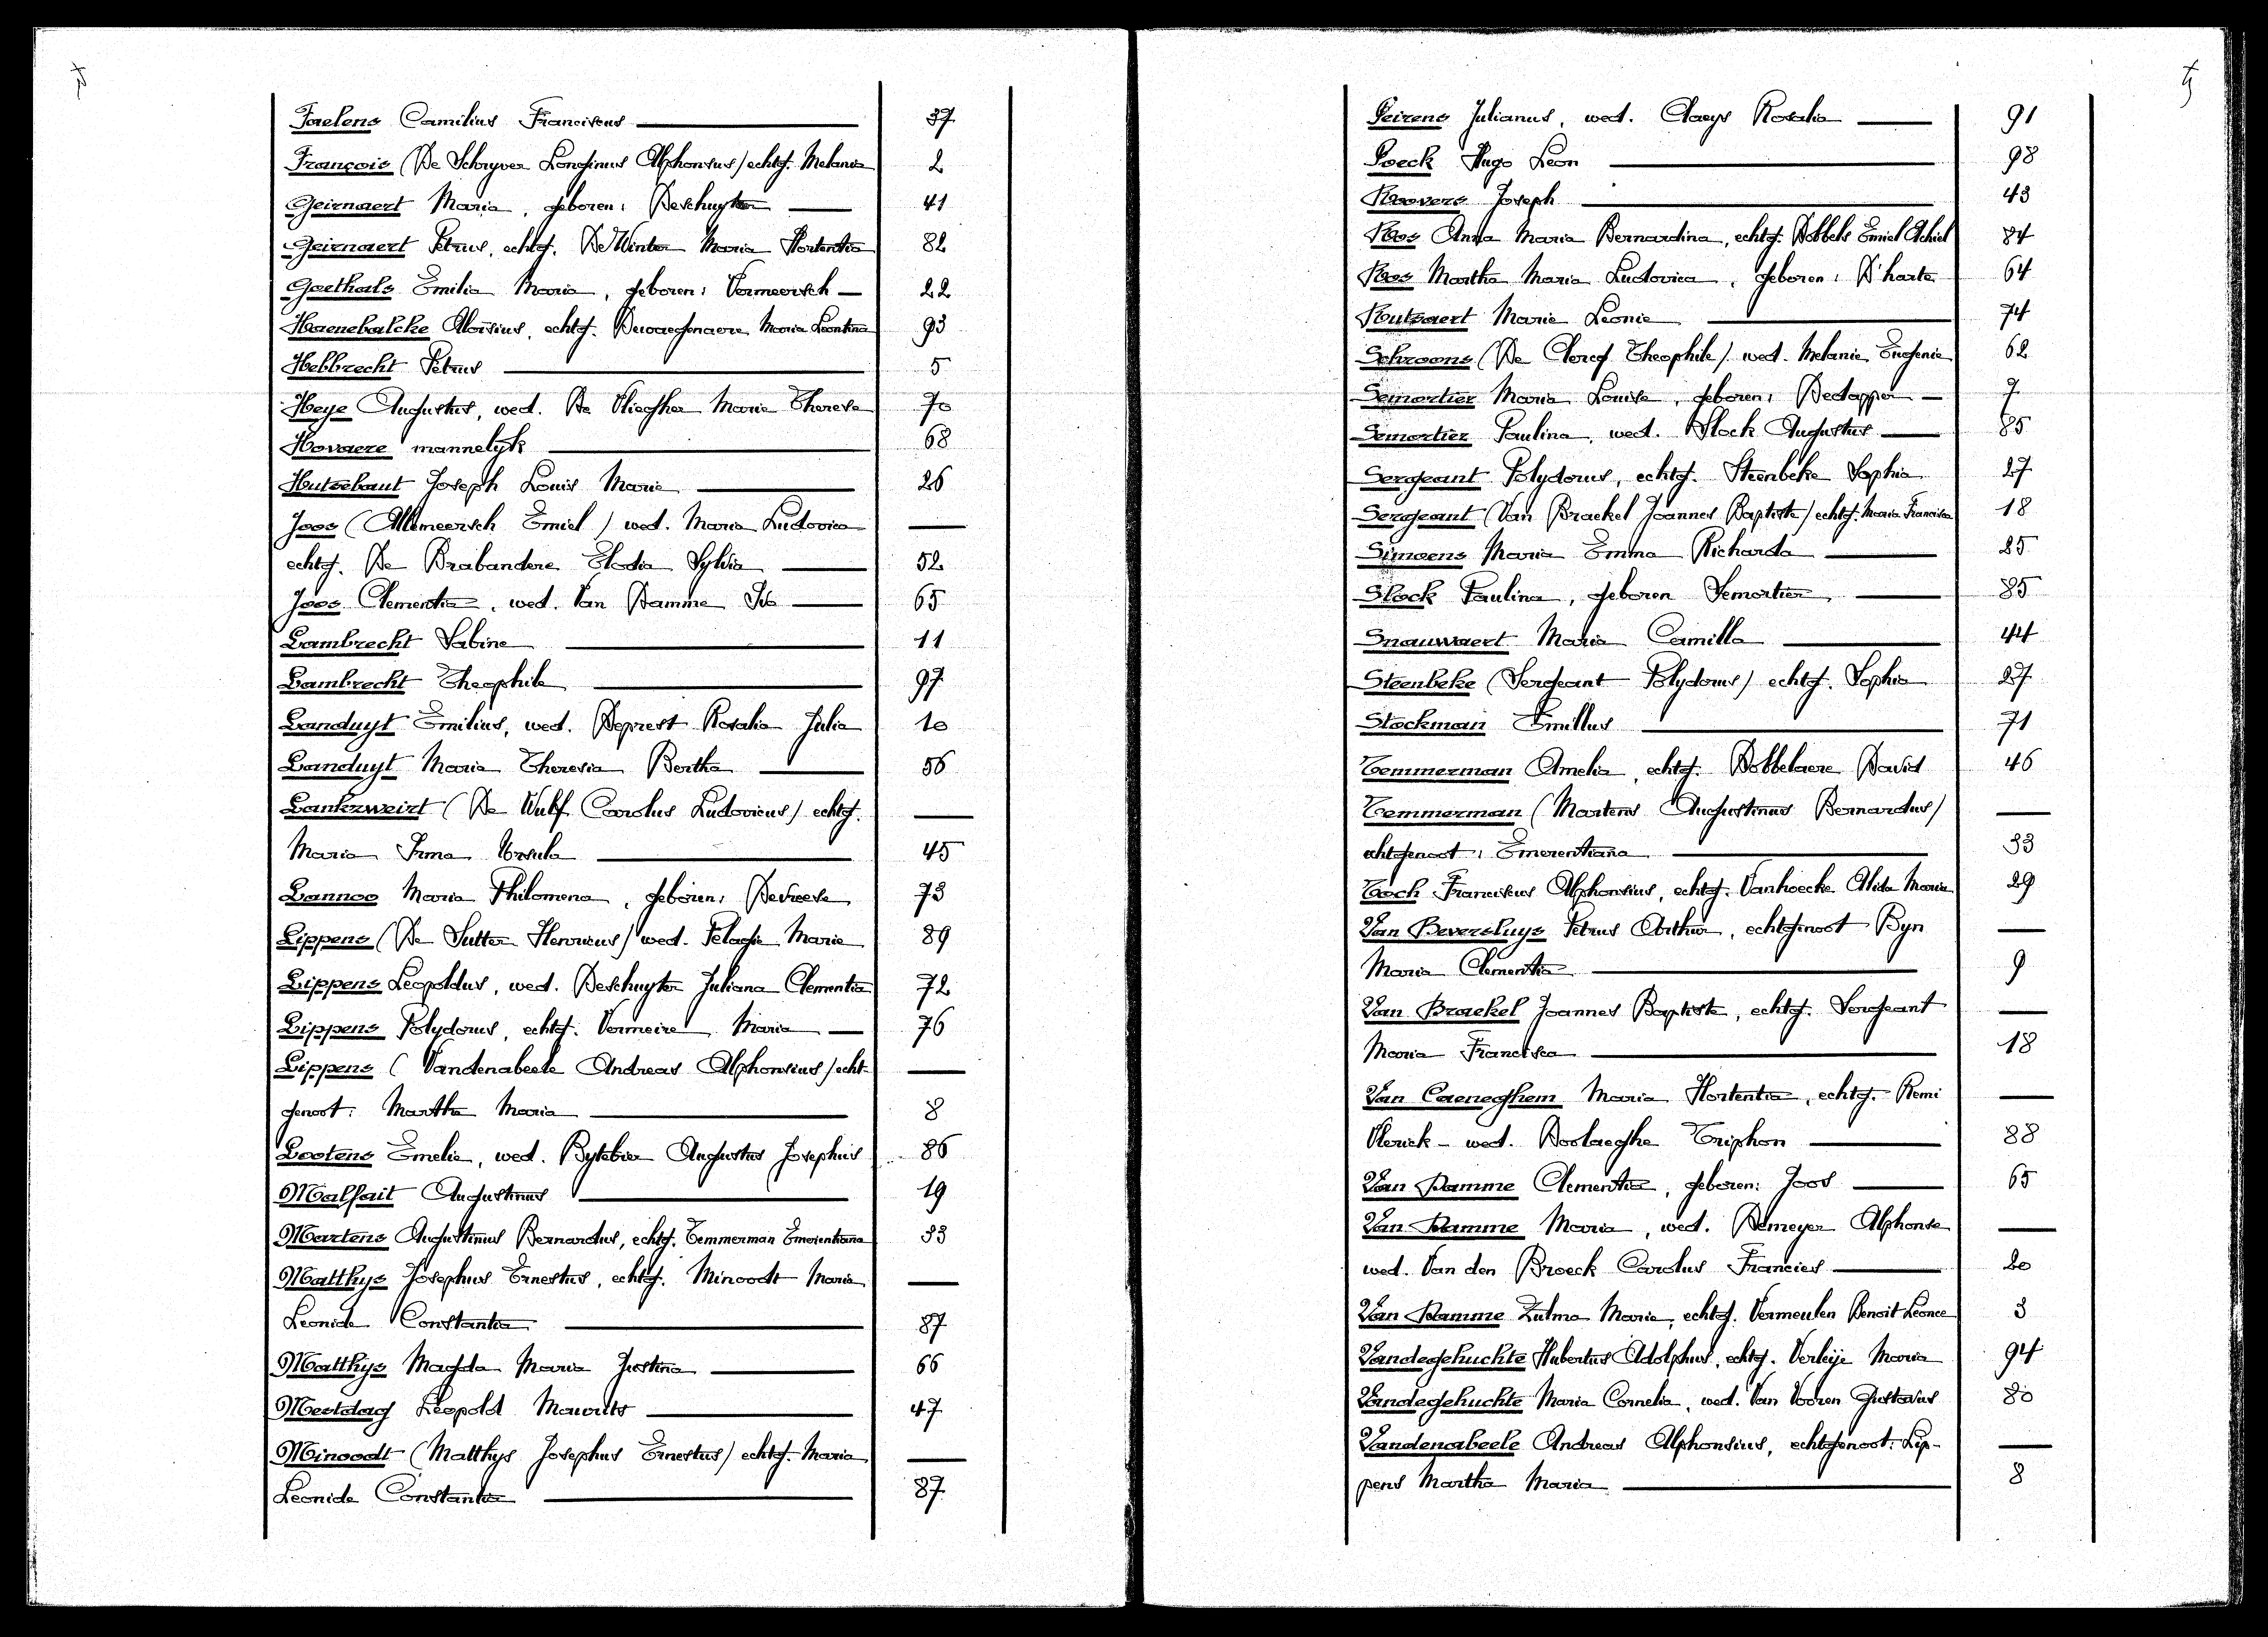 Faelens Camilius Franciscus 37
François (De Schryver Longinus Alphonsus) echtg. Melania 2
Geirnaert Maria, geboren: Deschuyter 41
Geirnaert Petrus, echtg. De Winter Maria Hortentia 82
Goethals Emilia Maria, geboren: Vermeersch 22
Haenebalcke Aloïsius, echtg. Dewaegenaere Maria Leontina 93
Hebbrecht Petrus 5
Heye Augustus, wed. De Vliegher Marie Therese 70
Hovaere mannelyk 68
Hutsebaut Joseph Louis Marie 26
Joos (Allemeersch Emiel) wed. Maria Ludovica —
echtg. De Brabandere Elodia Sylvia 52
Joos Clementia, wed. Van Damme Ivo 65
Lambrecht Sabine 11
Lambrecht Theophile 97
Landuyt Emilius, wed. Deprest Rosalia Julia 10
Landuyt Maria Theresia Bertha 56
Lankzweirt (De Wulf Carolus Ludovicus) echtg. —
Maria Irma Ursula 45
Lannoo Maria Philomena, geboren: Devreese 73
Lippens (De Sutter Henricus) wed. Pelagie Marie 89
Lippens Leopoldus, wed. Deschuyter Juliana Clementia 72
Lippens Polydorus, echtg. Vermeire Maria 76
Lippens (Vandenabeele Andreas Alphonsius) echt- —
genoot: Martha Maria 8
Lootens Emelie, wed. Bytebier Augustus Josephus 86
Malfait Augustinus 19
Martens Augustinus Bernardus, echtg. Temmerman Emerentiana 33
Matthys Josephus Ernestus, echtg. Minoodt Maria —
Leonide Constantia 87
Matthys Magda Maria Justina 66
Mestdag Léopold Maurits 47
Minoodt (Matthys Josephus Ernestus) echtg. Maria —
Leonide Constantia 87
Peirens Julianus, wed. Claeys Rosalia 91
Poeck Hugo Leon 98
Roovers Joseph 43
Roos Anna Maria Bernardina, echtg. Dobbels Emiel Achiel 84
Roos Martha Maria Ludovica, geboren: D'harte 64
Routsaert Marie Leonie 74
Schroons (De Clercq Theophile) wed. Melanie Eugenie 62
Semortier Maria Louise, geboren: Dedapper 7
Semortier Paulina, wed. Slock Augustus 85
Sergeant Polydorus, echtg. Steenbeke Sophia 27
Sergeant (Van Braekel Joannes Baptiste) echtg. Maria Francisca 18
Simoens Maria Emma Richarda 25
Slock Paulina, geboren Semortier 85
Snauwaert Maria Camilla 44
Steenbeke (Sergeant Polydorus) echtg. Sophia 27
Stockman Emillus 71
Temmerman Amelia, echtg. Dobbelaere David 46
Temmerman (Martens Augustinus Bernardus) —
echtgenoot: Emerentiana 33
Toch Franciscus Alphonsius, echtg. Vanhoecke Alida Maria 29
Van Beversluys Petrus Arthur, echtgenoot Byn —
Maria Clementia 9
Van Braekel Joannes Baptiste, echtg. Sergeant —
Maria Francisca 18
Van Caeneghem Maria Hortentia, echtg. Remi —
Vlerick - wed. Boolaeghe Triphon 88
Van Damme Clementia, geboren: Joos 65
Van Damme Maria, wed. Demeyer Alphonse —
wed. Van den Broeck Carolus Francies 20
Van Damme Zulma Marie, echtg. Vermeulen Benoit Leonce 3
Vandegehuchte Hubertus Adolphus, echtg. Verleije Maria 94
Vandegehuchte Maria Cornelia, wed. Van Vooren Gustavus 80
Vandenabeele Andreas Alphonsius, echtgenoot: Lip- —
pens Martha Maria 8